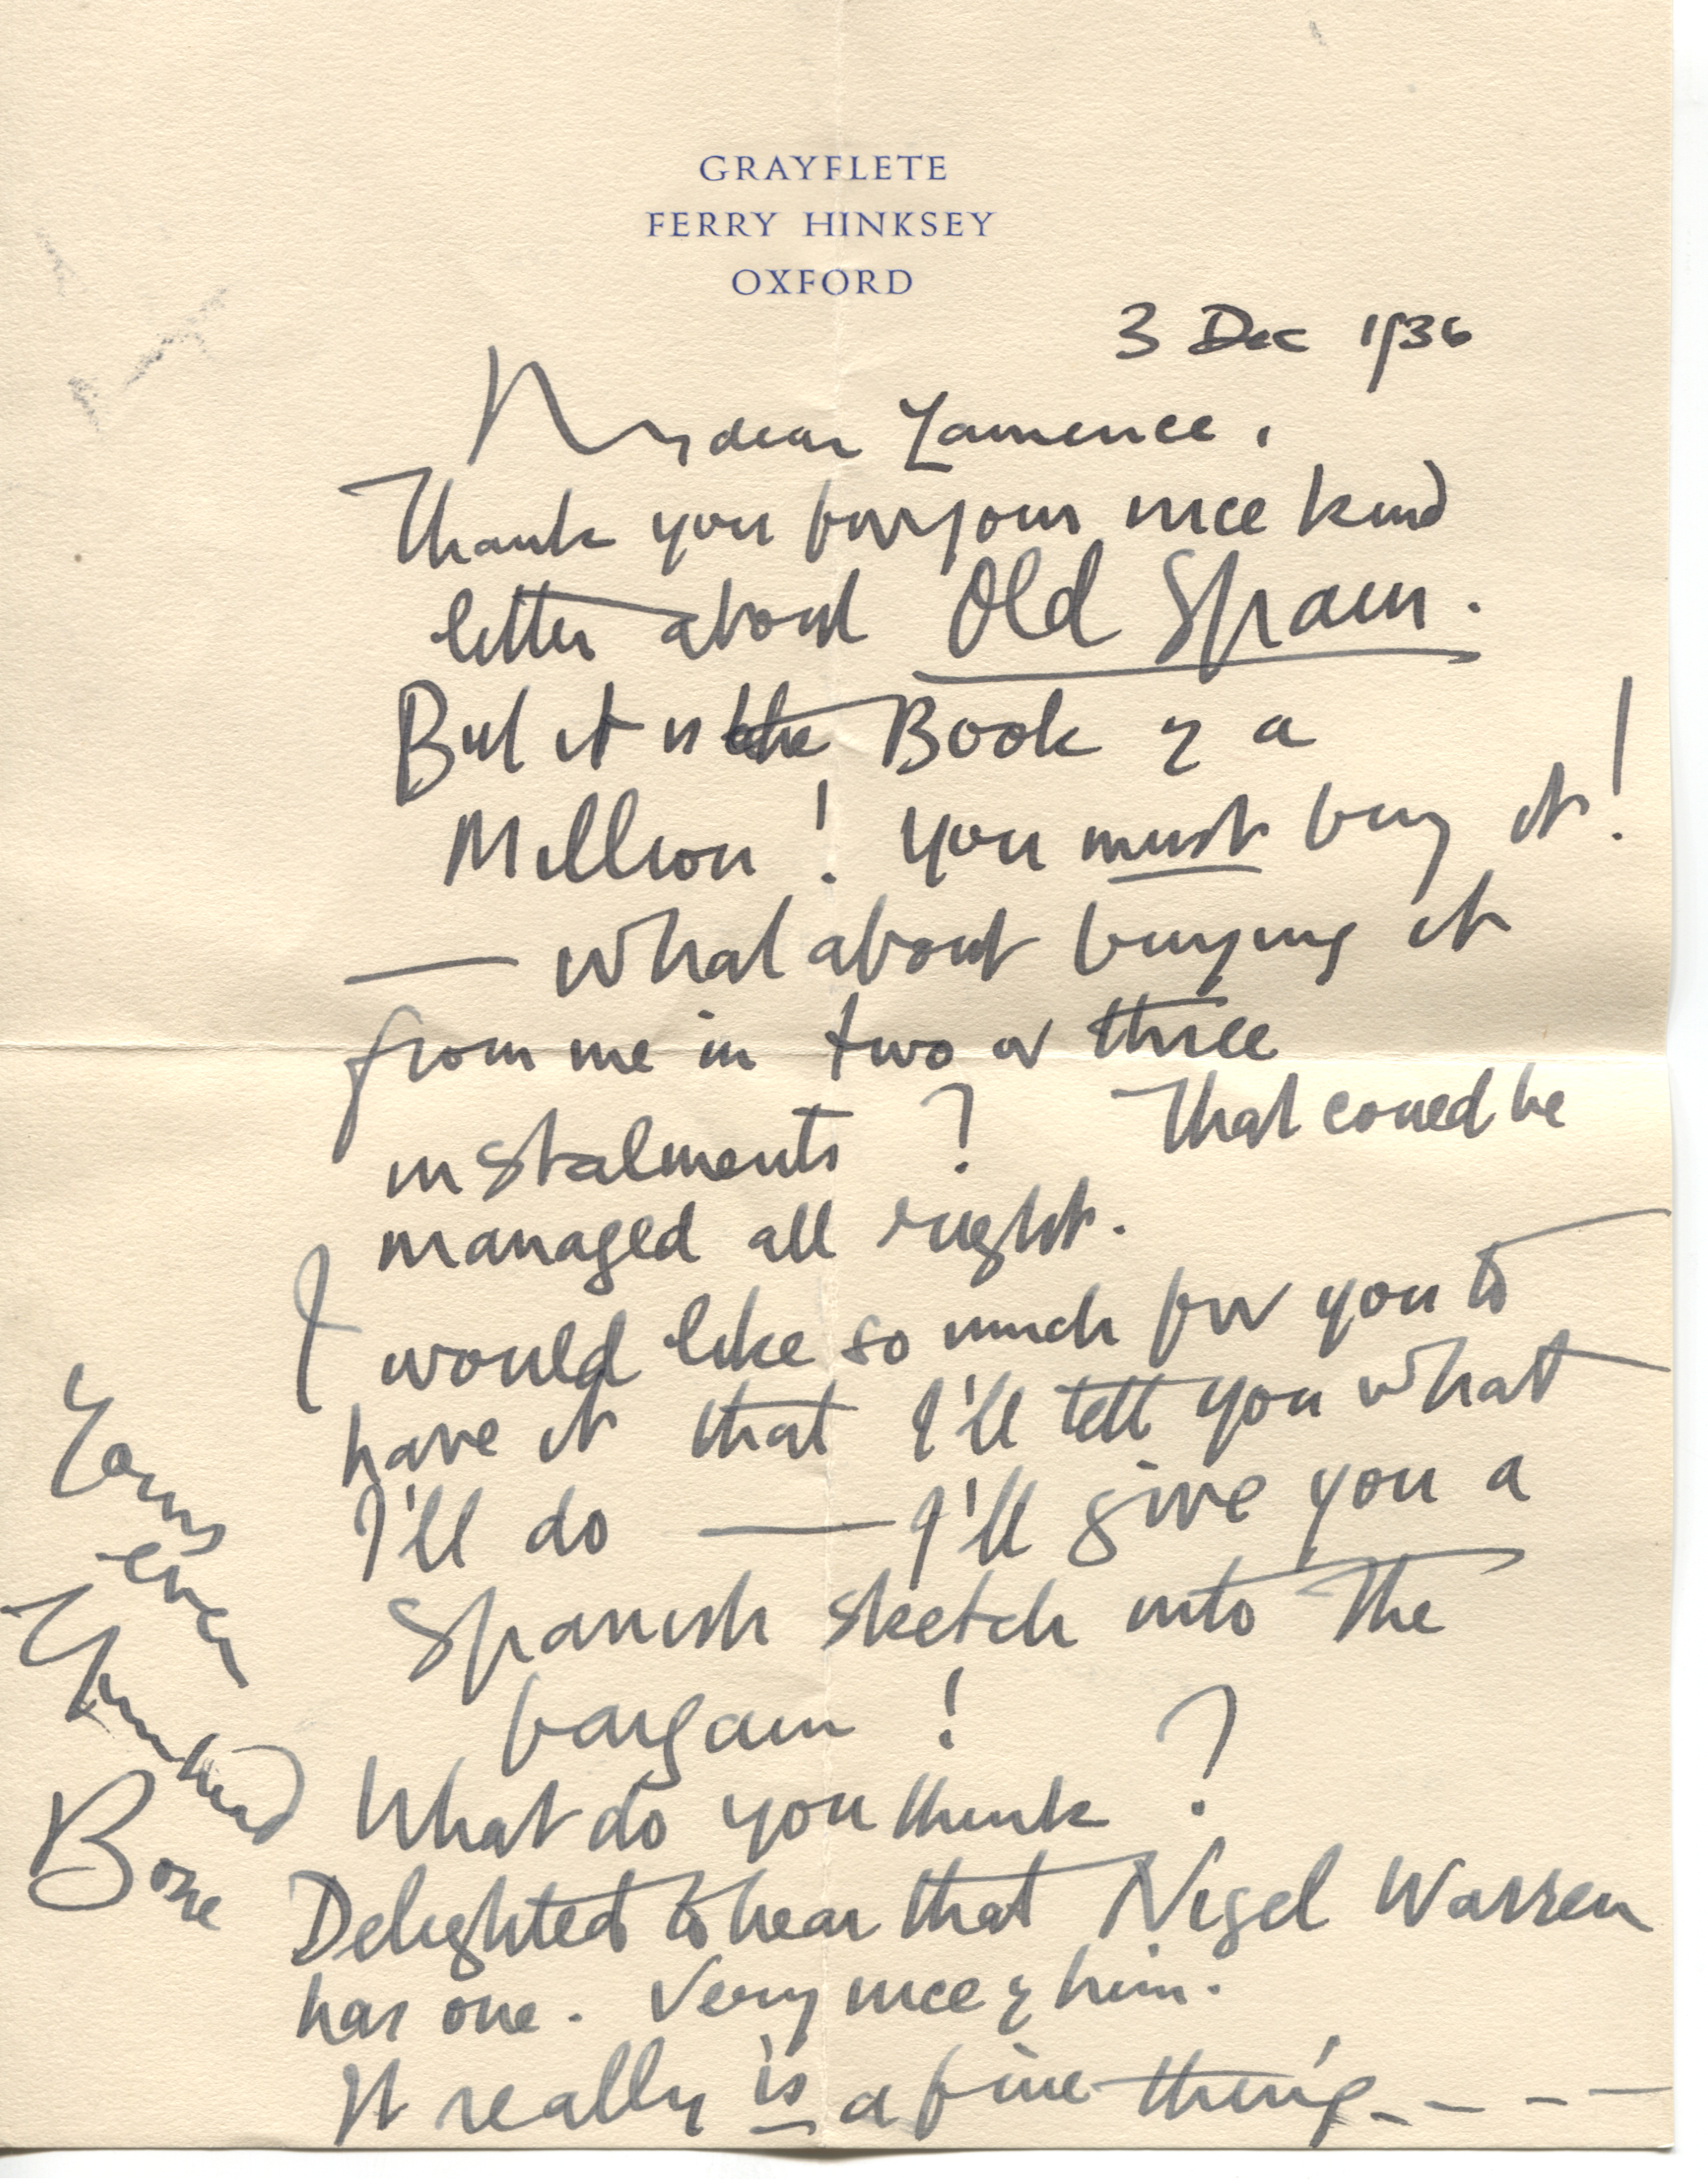 GRAYFLETE
FERRY HINKSEY
OXFORD
3 Dec 1936
My dear Lawrence,
Thank you for your nice kind
letter about Old Spain.
But it is the Book of a
Million! You must buy it!
— What about buying it
from me in two or three
instalments? That could be
managed all right.
I would like so much for you to
have it that I'll tell you what
I'll do — I'll give you a
Spanish sketch into the
bargain!
What do you think?
Delighted to hear that Nigel Warren
has one. Very nice of him.
It really is a fine thing - - - -
Yours
ever
Muirhead
Bone